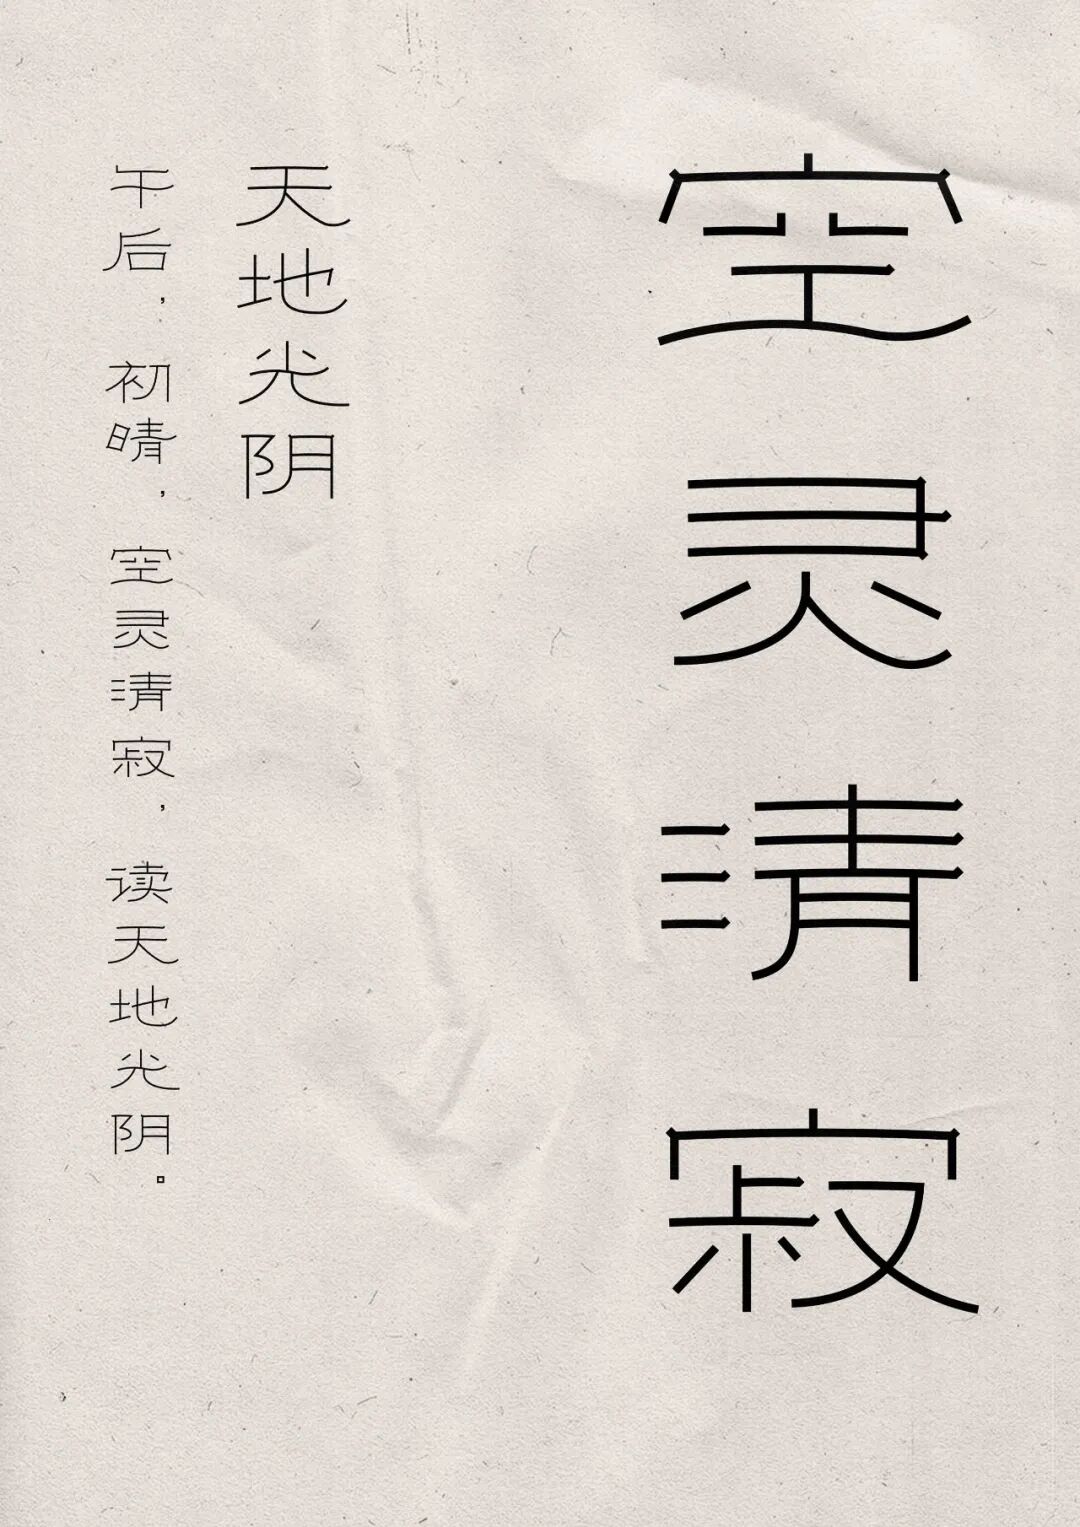 空灵清寂
天地光阴
午后，初晴，空灵清寂，读天地光阴。